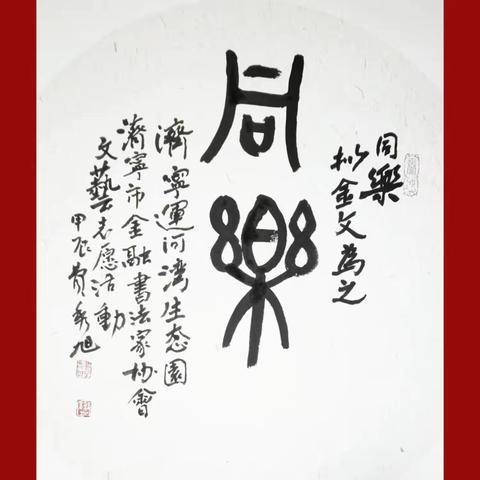 同樂
拟金文為之
同樂
濟寧運河湾生态園
濟寧市金融書法家协會
文藝志愿活動
甲辰